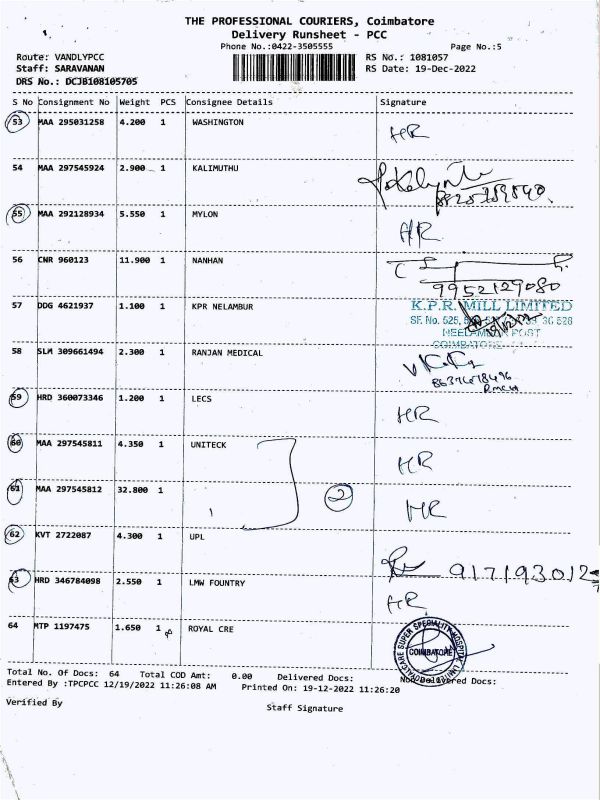 THE PROFESSIONAL COURIERS, Coimbatore
Delivery Runsheet - PCC
Phone No.:0422-3505555 Page No.:5
Route: VANDLYPCC RS No.: 1081057
Staff: SARAVANAN RS Date: 19-Dec-2022
DRS No.: DCJB108105705
S No Consignment No Weight PCS Consignee Details Signature
53 MAA 295031258 4.200 1 WASHINGTON HR
54 MAA 297545924 2.900 1 KALIMUTHU
55 MAA 292128934 5.550 1 MYLON HR
56 CNR 960123 11.900 1 NANHAN
9952129080
57 DDG 4621937 1.100 1 KPR NELAMBUR K.P.R. MILL LIMITED
SF. No. 525,
NEELAMBUR POST
COIMBATORE
58 SLM 309661494 2.300 1 RANJAN MEDICAL
59 HRD 360073346 1.200 1 LECS HR
60 MAA 297545811 4.350 1 UNITECK HR
61 MAA 297545812 32.800 1 2 HR
62 KVT 2722087 4.300 1 UPL
63 HRD 346784098 2.550 1 LMW FOUNTRY HR
64 MTP 1197475 1.650 1 ROYAL CRE
ROYALCARE SUPER SPECIALITY HOSPITAL LIMITED
COIMBATORE
Total No. Of Docs: 64 Total COD Amt: 0.00 Delivered Docs: Non Delivered Docs:
Entered By :TPCPCC 12/19/2022 11:26:08 AM Printed On: 19-12-2022 11:26:20
Verified By Staff Signature